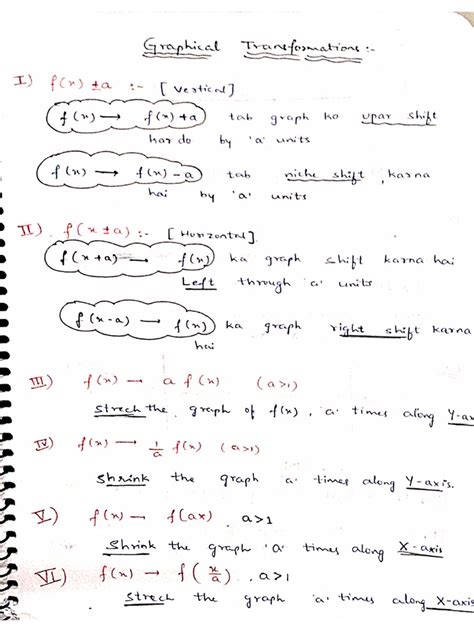 Graphical Transformations :-
I) f(x) ± a :- [Vertical]
f(x) → f(x)+a tab graph ko upar shift
kar do by 'a' units
f(x) → f(x)-a tab niche shift karna
hai by 'a' units
II) f(x±a) :- [Horizontal]
f(x+a) → f(x) ka graph shift karna hai
Left through 'a' units
f(x-a) → f(x) ka graph right shift karna
hai
III) f(x) → a f(x) (a>1)
strech the graph of f(x), 'a' times along Y-ax
IV) f(x) → 1/a f(x) (a>1)
Shrink the graph 'a' times along Y-axis.
V) f(x) → f(ax), a>1
Shrink the graph 'a' times along X-axis
VI) f(x) → f(x/a), a>1
strech the graph 'a' times along X-axis